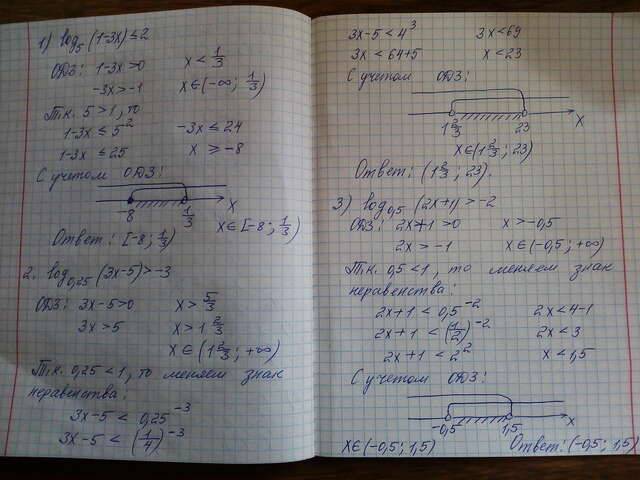 1) log₅ (1-3x) ≤ 2
ОДЗ: 1-3x>0 x < 1/3
-3x>-1 x∈(-∞; 1/3)
Т.к. 5>1, то
1-3x ≤ 5² -3x ≤ 24
1-3x ≤ 25 x ≥ -8
С учетом ОДЗ:
-8 1/3 x
x∈[-8; 1/3)
Ответ: [-8; 1/3)
2. log₀,₂₅ (3x-5) > -3
ОДЗ: 3x-5>0 x > 5/3
3x>5 x > 1 2/3
x∈(1 2/3; +∞)
Т.к. 0,25 < 1, то меняем знак
неравенства:
3x-5 < 0,25⁻³
3x-5 < (1/4)⁻³
3x-5 < 4³ 3x < 69
3x < 64+5 x < 23
С учетом ОДЗ:
1 2/3 23 x
x∈(1 2/3; 23)
Ответ: (1 2/3; 23).
3) log₀,₅ (2x+1) > -2
ОДЗ: 2x+1 >0 x > -0,5
2x > -1 x∈(-0,5; +∞)
Т.к. 0,5<1, то меняем знак
неравенства:
2x+1 < 0,5⁻² 2x < 4-1
2x+1 < (1/2)⁻² 2x < 3
2x+1 < 2² x < 1,5
С учетом ОДЗ:
-0,5 1,5 x
x∈(-0,5; 1,5) Ответ: (-0,5; 1,5)